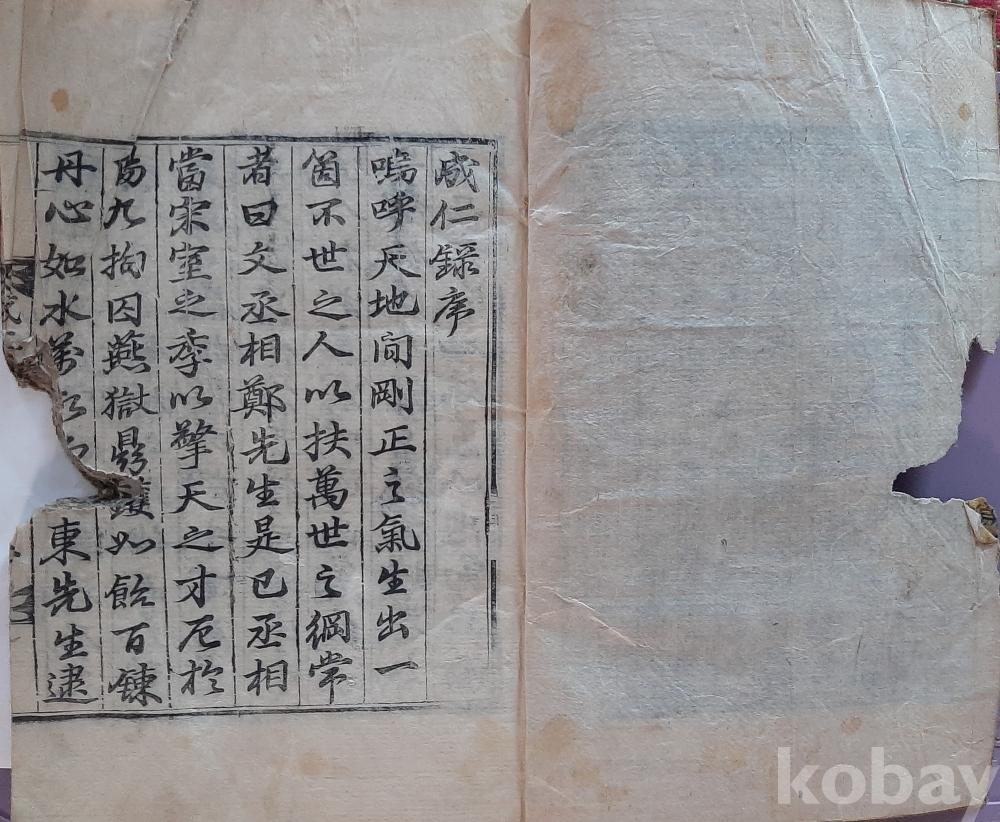 成仁錄序
嗚呼天地間剛正之氣生出一
箇不世之人以扶萬世之綱常
者曰文丞相鄭先生是已丞相
當宋室之季以擎天之才厄於
陽九拘囚燕獄鼎鑊如飴百鍊
丹心如水萬 東先生逮
kobay